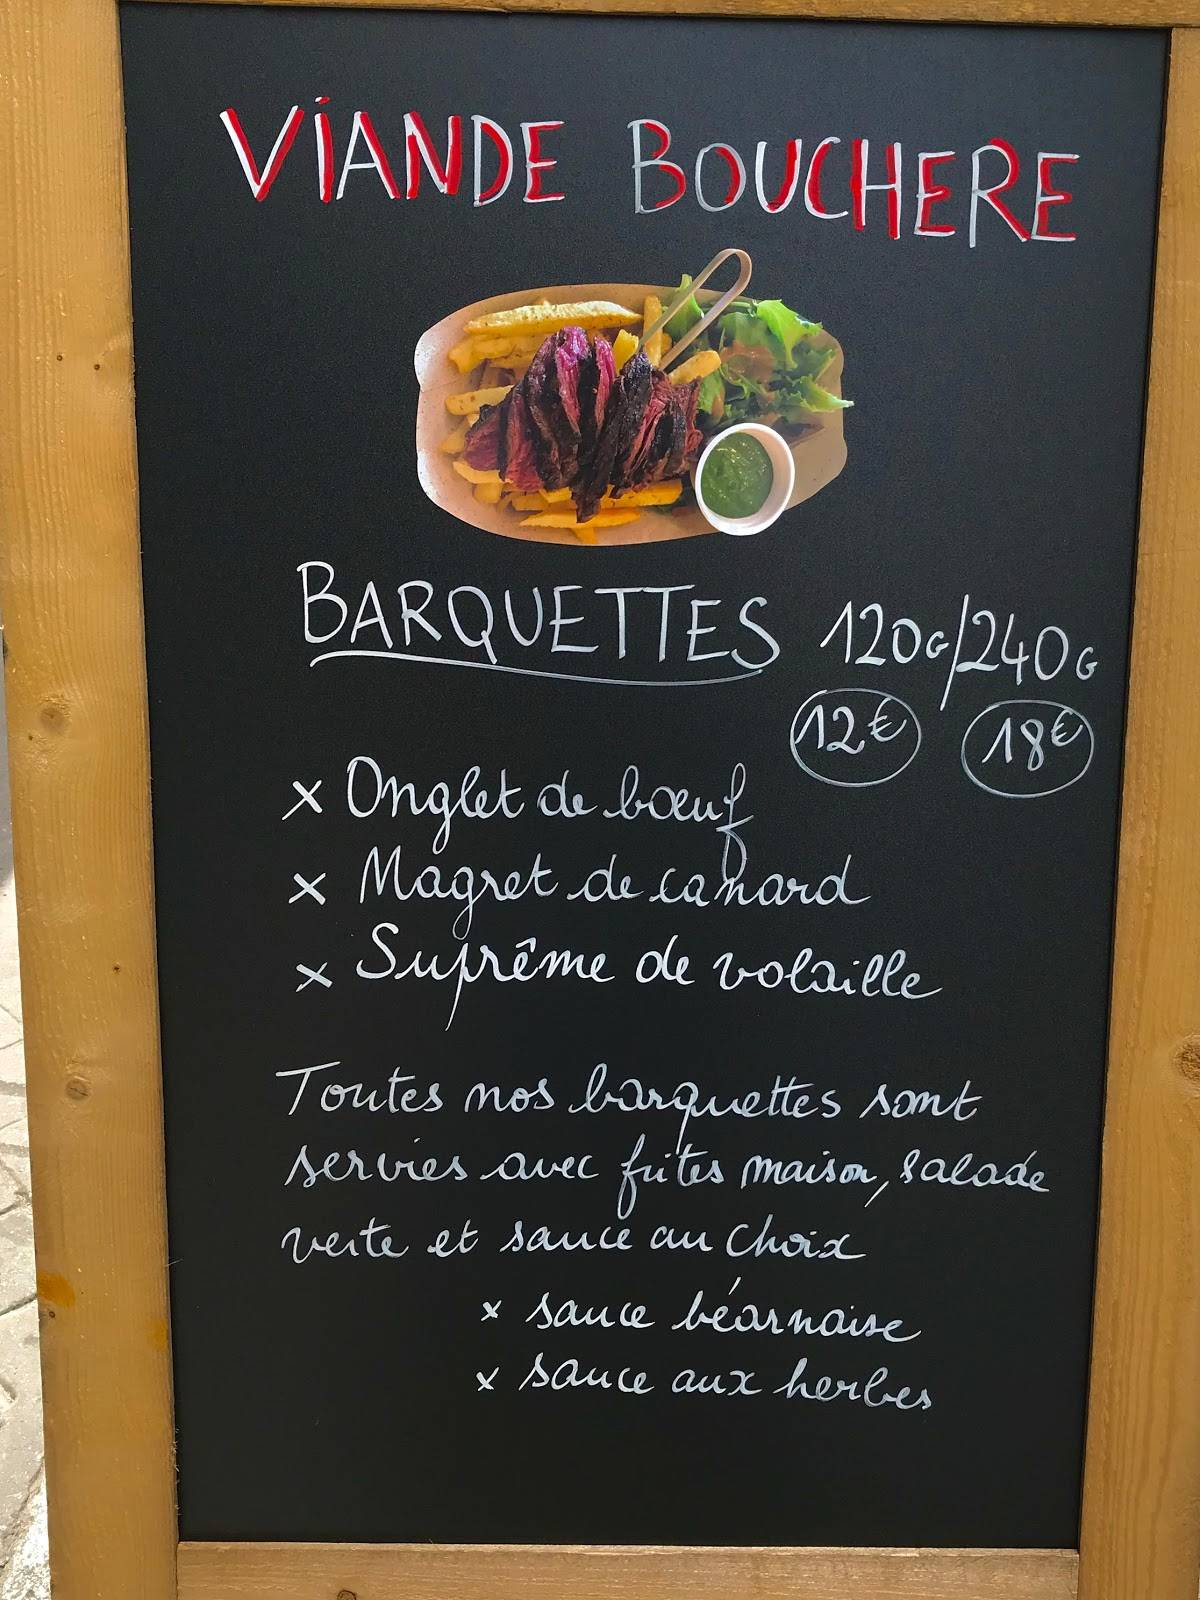 VIANDE BOUCHERE
BARQUETTES 120G/240G
12€ 18€
x Onglet de bœuf
x Magret de canard
x Suprême de volaille
Toutes nos barquettes sont
servies avec frites maison, salade
verte et sauce au choix
x sauce béarnaise
x sauce aux herbes